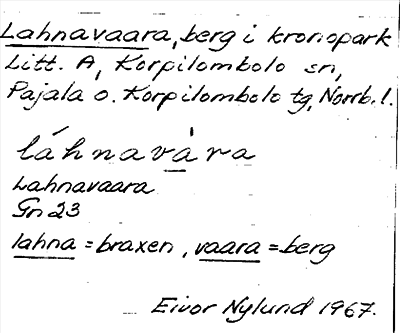 Lahnavaara, berg i kronopark
Litt. A, Korpilombolo sn,
Pajala o. Korpilombolo tg, Norrb. l.
láhnavàra
Lahnavaara
Gn 23
lahna = braxen, vaara = berg
Eivor Nylund 1967.